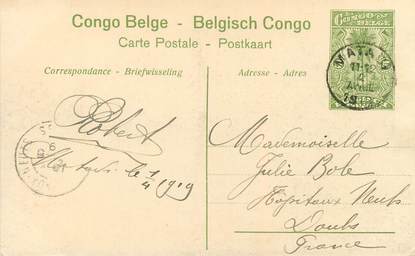 Congo Belge - Belgisch Congo
Carte Postale - Postkaart
Correspondance - Briefwisseling
Adresse - Adres
CONGO BELGE
MATADI
11-12
2
AVRIL
Robert
Matadi le 1/4 1919
Mademoiselle
Julie Bole
Hôpitaux Neufs
Doubs
France